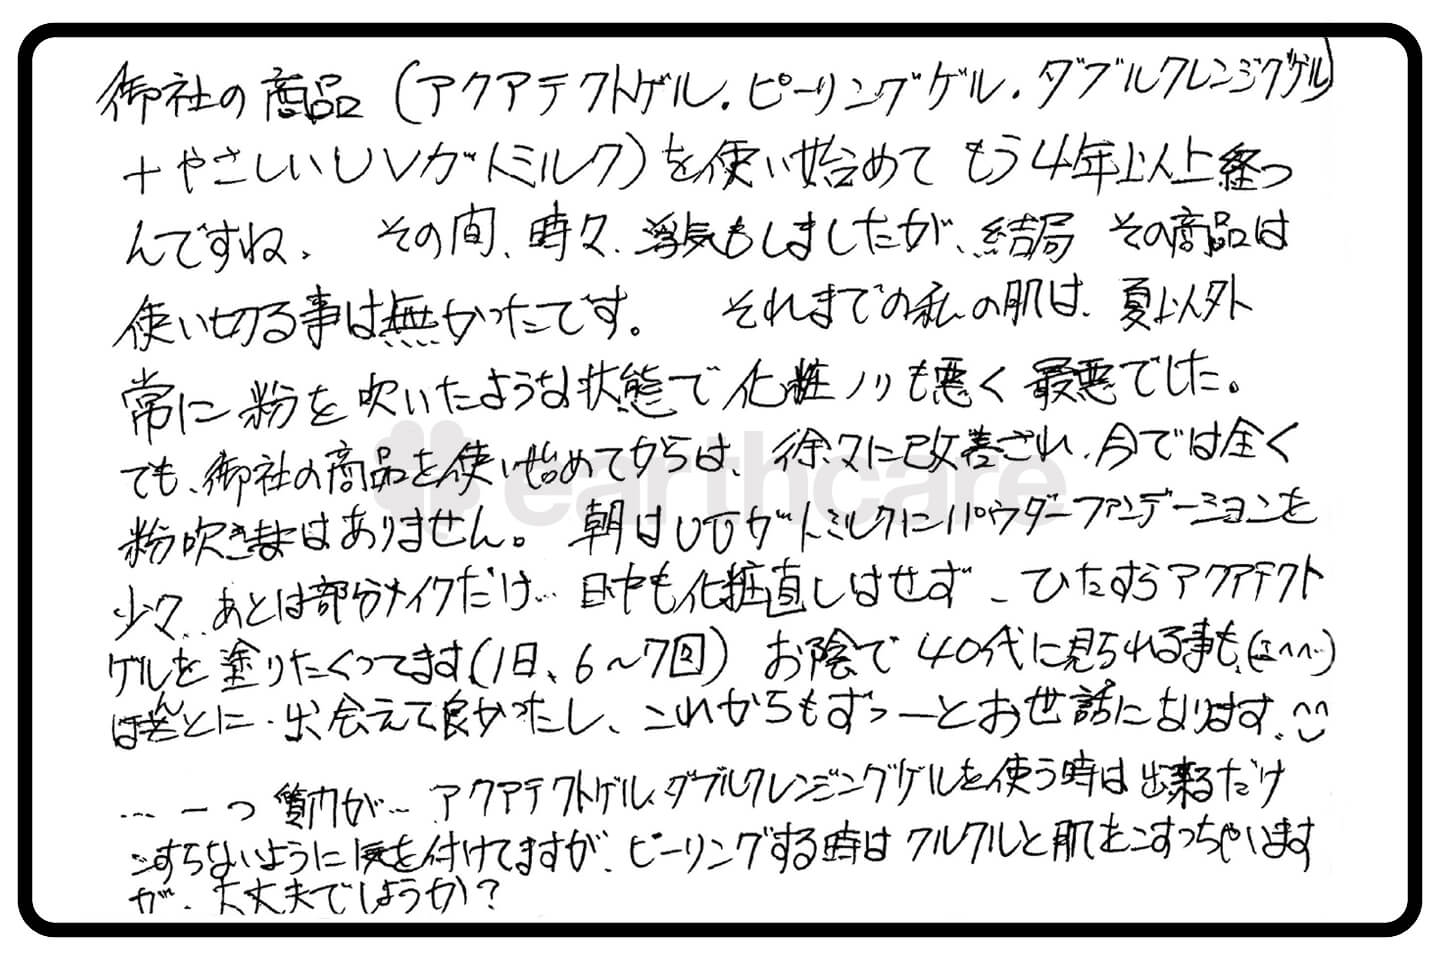 御社の商品(アクアテクトゲル・ピーリングゲル・ダブルクレンジングゲル
+やさしいUVガートミルク)を使い始めて もう4年以上経つ
んですね、 その間、時々、浮気もしましたが、結局 その商品は
使い切る事は無かったです。 それまでの私の肌は、夏以外
常に粉を吹いたような状態で化粧ノリも悪く最悪でした。
でも、御社の商品を使い始めてからは、徐々に改善され、今では全く
粉吹きはありません。 朝はUVガートミルクにパウダーファンデーションを
少々、あとは部分メイクだけ… 日中も化粧直しはせず、ひたすらアクアテクト
ゲルを塗りたくってます(1日、6〜7回) お陰で40代に見られる事も、
ほんとに、出会えて良かったし、これからもずっーとお世話になります。^^
…一つ質問が… アクアテクトゲル、ダブルクレンジングゲルを使う時は出来るだけ
こすらないように気を付けてますが、ピーリングする時はクルクルと肌をこすっちゃいます
が、大丈夫でしょうか?
earthcare